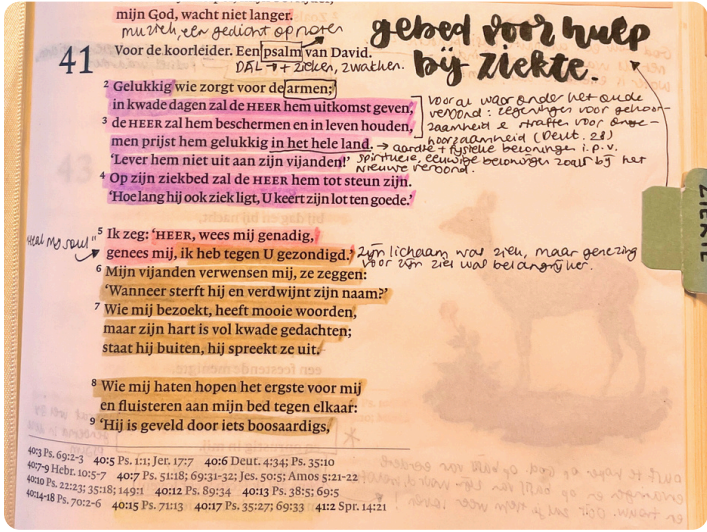 mijn God, wacht niet langer.
muziek, een gedicht op noten
gebed voor hulp
bij ziekte.
41
Voor de koorleider. Een psalm van David.
DAL → + zieken, zwakken.
2 Gelukkig wie zorgt voor de armen;
in kwade dagen zal de HEER hem uitkomst geven,
3 de HEER zal hem beschermen en in leven houden,
men prijst hem gelukkig in het hele land.
‘Lever hem niet uit aan zijn vijanden!’
4 Op zijn ziekbed zal de HEER hem tot steun zijn.
‘Hoe lang hij ook ziek ligt, U keert zijn lot ten goede.’
vooral waar onder het oude
verbond: zegeningen voor gehoor-
zaamheid & straffen voor onge-
hoorzaamheid (Deut. 28)
→ aardse + fysieke beloningen i.p.v.
spirituele, eeuwige beloningen zoals bij het
nieuwe verbond.
ZIEKTE
5 Ik zeg: ‘HEER, wees mij genadig,
genees mij, ik heb tegen U gezondigd.’
"Heal my soul"
zijn lichaam was ziek, maar genezing
voor zijn ziel was belangrijker.
6 Mijn vijanden verwensen mij, ze zeggen:
‘Wanneer sterft hij en verdwijnt zijn naam?’
7 Wie mij bezoekt, heeft mooie woorden,
maar zijn hart is vol kwade gedachten;
staat hij buiten, hij spreekt ze uit.
8 Wie mij haten hopen het ergste voor mij
en fluisteren aan mijn bed tegen elkaar:
9 ‘Hij is geveld door iets boosaardigs,
40:3 Ps. 69:2-3 40:5 Ps. 1:1; Jer. 17:7 40:6 Deut. 4:34; Ps. 35:10
40:7-9 Hebr. 10:5-7 40:7 Ps. 51:18; 69:31-32; Jes. 50:5; Amos 5:21-22
40:10 Ps. 22:23; 35:18; 149:1 40:12 Ps. 89:34 40:13 Ps. 38:5; 69:5
40:14-18 Ps. 70:2-6 40:15 Ps. 71:13 40:17 Ps. 35:27; 69:33 41:2 Spr. 14:21